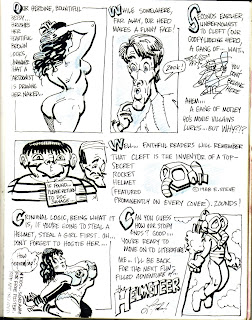 OUR HEROINE, BOUNTIFUL
BETSY,
BRUSHES
HER
BEAUTIFUL
BROWN
LOCS,
AWARE
THAT A
CARTOONIST
IS DRAWING
HER NAKED...
WHILE SOMEWHERE,
FAR AWAY, OUR HERO
MAKES A FUNNY FACE!
SECONDS EARLIER,
UNBEKNOWNST
TO CLEFT (OUR
GOOFY LOOKING HERO),
A GANG OF -- WAIT..
GACK!
AHEM...
A GANG OF MOTLEY
60'S MOVIE VILLAINS
LURKS... BUT WHY?!?
IF FOUND,
PLEASE RETURN
TO
WELL... FAITHFUL READERS WILL REMEMBER
THAT CLEFT IS THE INVENTOR OF A TOP-
SECRET
ROCKET
HELMET
FEATURED
(PROMINENTLY ON EVERY COVER). ZOUNDS!
CRIMINAL LOGIC, BEING WHAT IT
IS, IF YOU'RE GOING TO STEAL A
HELMET, STEAL A GIRL FIRST. OH...
DON'T FORGET TO HOGTIE HER...
CAN YOU GUESS
HOW OUR STORY
ENDS? GOOD...
YOU'RE READY TO
MOVE ON TO LITERATURE
ME.. I'LL BE BACK
FOR THE NEXT FUN
FILLED ADVENTURE OF
HELMETEER